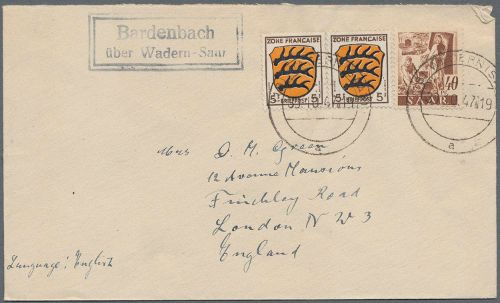 Bardenbach
über Wadern-Saar
ZONE FRANÇAISE
5 BRIEFPOST 5
ZONE FRANÇAISE
5 BRIEFPOST 5
40
SAAR
47
47
19
a
a
Mrs D. M. Green
12 Avenue Mansions
Finchley Road
London N W 3
England
Language: English